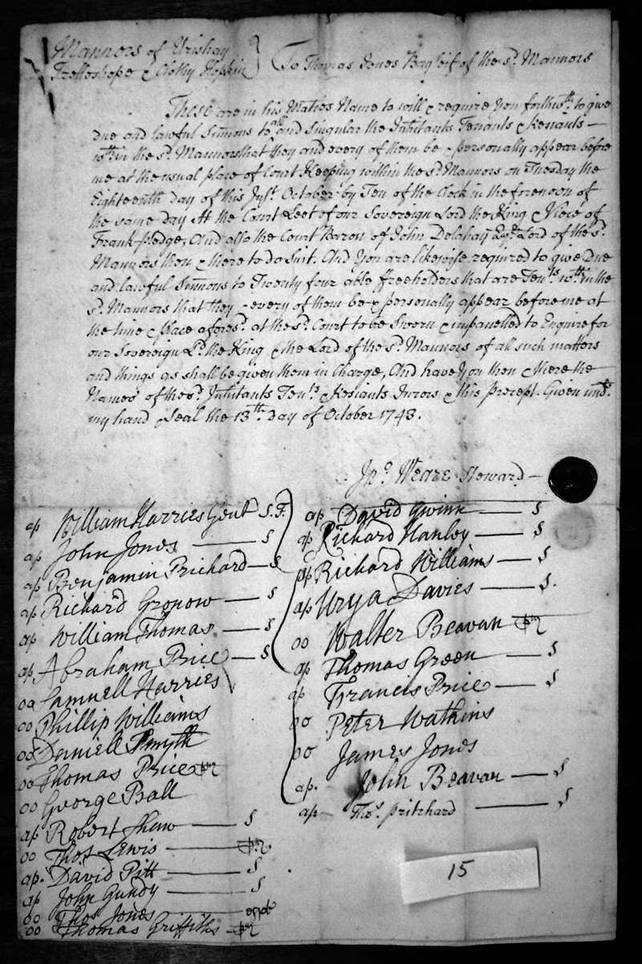 Mannors of Urishay
Trelleshope & Clothy Hopkin } To Thomas Jones Bayliff of the sd. Mannors
These are in his Maties Name to will & require you forthwth. to give
due and lawful Sumons to all and singular the Inhitants Tenants & Resiants
wthin the sd. Mannors that they and every of them be & personally appear before
me at the usual place of Court Keeping within the sd. Mannors on Tuesday the
Eighteenth day of this Inst. October by Ten of the Clock in the forenoon of
the same day At the Court Leet of our Sovereign Lord the King & View of
Frank pledge, And also the Court Baron of John Delahay Esqr. Lord of the sd.
Mannors then & there to do suit. And you are likewise required to give Due
and lawful Sumons to Twenty four able freeholders that are Tents. wthin the
sd. Mannors that they & every of them be & personally appear before me at
the time & place aforesd. at the sd. Court to be Sworn & impanelled to Enquire for
our Sovereign Ld. the King & the Lord of the sd. Mannors of all such matters
and things as shall be given them in Charge, And have you then & there the
Names of the sd. Inhitants Tents. & Resiants Jurors & this precept. Given undr.
my hand & Seal the 13th. Day of October 1743.
Jno. Weare Steward
ap William Harries Gent S. F.
ap John Jones — S
ap Benjamin Prichard — S
ap Richard Gronow — S
ap William Thomas — S
ap Abraham Price — S
oo Samuell Harries
oo Phillip Williams
oo Daniell Smyth
oo Thomas Price
oo George Ball
ap Robert Shaw — S
oo Thos Lewis
ap. David Pitt — S
ap John Gundy — S
oo Thos Jones
oo Thomas Griffiths
ap David Gwinn — S
ap Richard Hanley — S
ap Richard Williams — S
ap Urya Davies — S.
oo Walter Beavan
ap Thomas Green — S
ap Francis Price — S
oo Peter Watkins
oo James Jones
ap. John Beavan — S
ap Thos. Pritchard — S
15